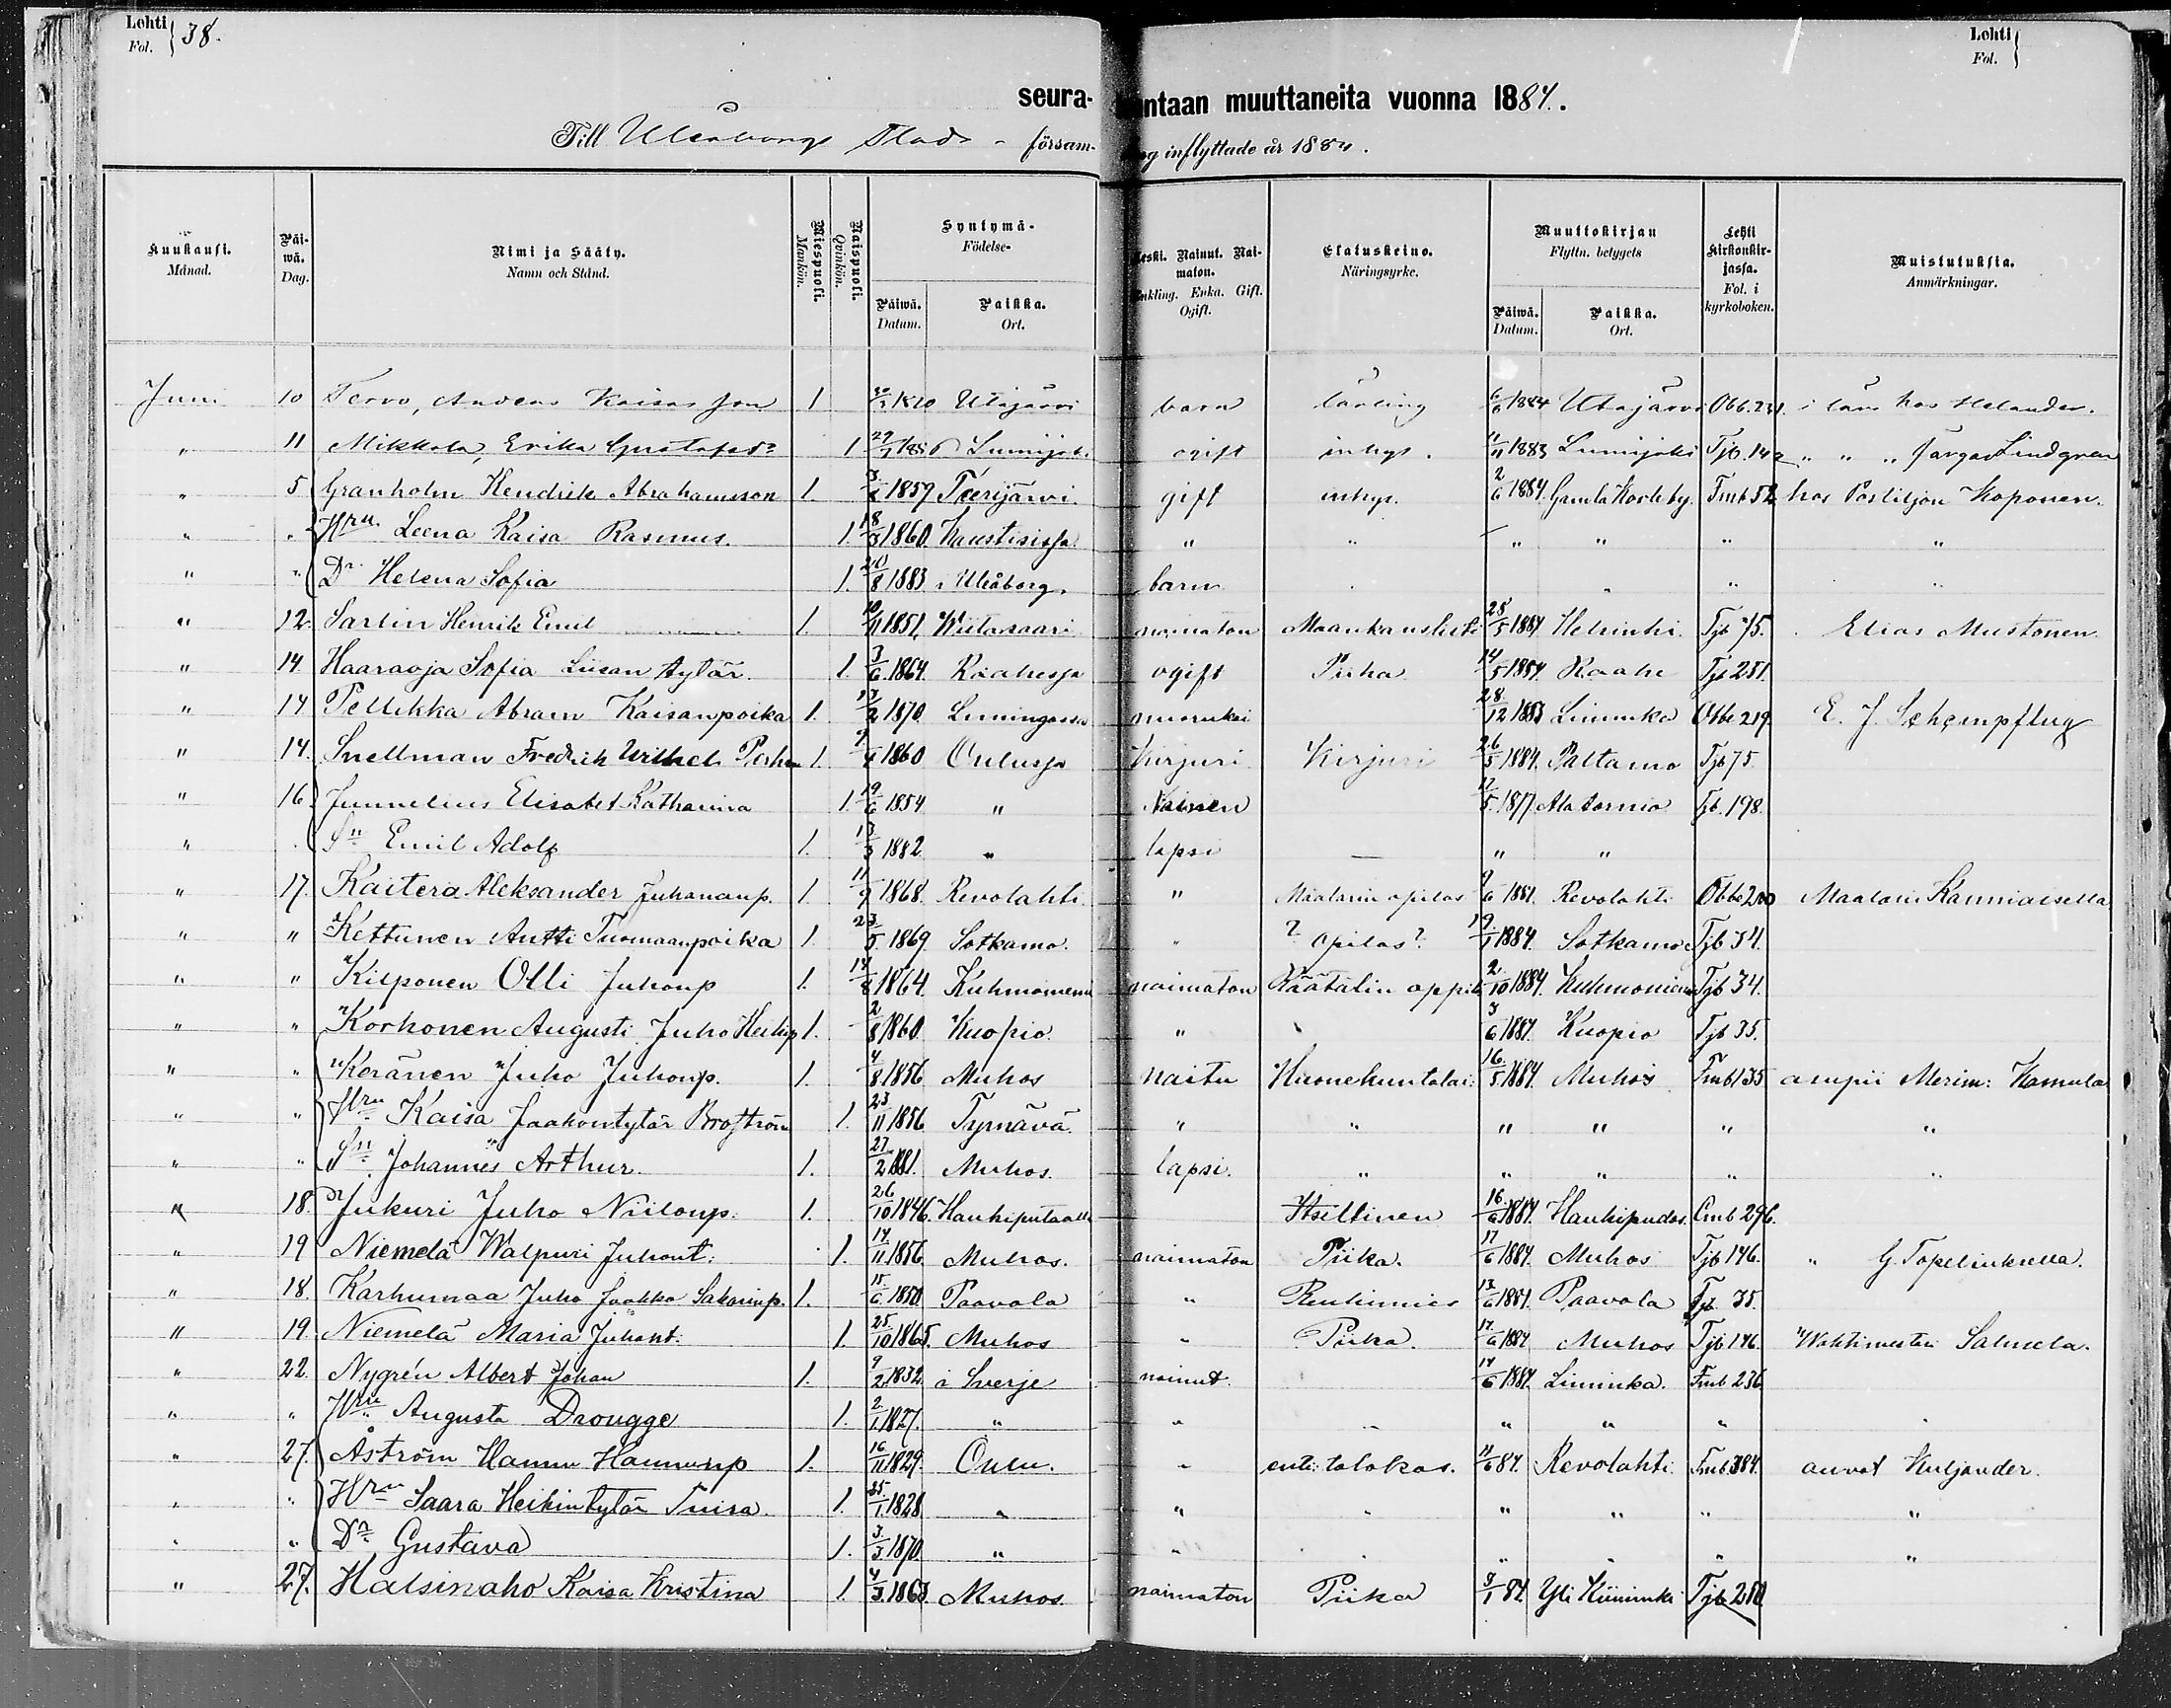 Lehti Fol. } 38.
Lehti Fol. }
seurakuntaan muuttaneita vuonna 1884.
Till Uleåborgs Stads - församling inflyttade år 1884.
Kuukausi. Månad. Päiwä. Dag. Nimi ja Sääty. Namn och Stånd. Miespuoli. Mankön. Waispuoli. Qvinkön. Syntymä- Födelse- Päiwä. Datum. Paikka. Ort. Leski. Nainut. Naimaton. Enkling. Enka. Gift. Ogift. Elatuskeino. Näringsyrke. Muuttokirjan Flyttn. betygets Päiwä. Datum. Paikka. Ort. Lehti kirkonkirjassa. Fol. i kyrkoboken. Muistutuksia. Anmärkningar.
Juni 10 Tervo, Anders Kaisas son 1 1870 Utajärvi barn lärling 6/6 1884 Utajärvi Obb. 231. i lära hos Helander.
" 11 Mikkola, Erika Gustafsdr 1 Lumijoki ogift inhys. 11/11 1883 Lumijoki Tjb. 142 " " " färgar Lindgren
" 5 Granholm Hendrik Abrahamsson 1. 1859 Teerijärvi. gift inhys. 2/6 1884. Gamla Karleby. Tmb 52 hos Postiljon Koponen.
" " Hru Leena Kaisa Rasmus. 1. 18/3 1860. Kaustisissa. " " " " " "
" " Dr Helena Sofia 1. 20/8 1883 i Uleåborg. barn " "
" 12. Sarlin Henrik Emil 1. 10/11 1851. Wiitasaari naimaton Maankanslisti 28/5 1884 Helsinki. Tjb 75. Elias Mustonen.
" 14. Haaraoja Sofia Liisan tytär. 1. 3/6 1864. Raahessa ogift Piika 14/5 1884. Raahe Tjb 251.
" 14 Pellikka Abram Kaisanpoika 1. 17/2 1870. Limingassa nuorukai 28/12 1883 Liminka Obbe 219. E. J. Schempflug
" 14. Snellman Fredrik Wilhel. 1. 9/4 1860 Oulussa Kirjuri. Kirjuri 26/5 1884. Paltamo Tjb 75.
" 16. Junnelius Elisabet Katharina 1. 19/6 1854 " Nainen 17/5 Alatornio Tjb. 198.
" Sn Emil Adolf 1. 13/3 1882 " lapsi — " "
" 17. Kaitera Aleksander Juhananp. 1. 11/9 1868. Revolahti. " Maalarin opilas Revolahti Obbe 200 Maalari Kanniaisella
" " Kettunen Antti Tuomaanpoika 1. 23/5 1869. Sotkamo. " ? opilas? 19/1 1884. Sotkamo Tjb 34.
" " Kilponen Olli Juhonp 1. 14/8 1864. Kuhmoniemi naimaton Räätälin oppila 2/10 1884. Kuhmoniemi Tjb 34.
" " Korhonen Augusti Juho Heikinp 1. 2/8 1860. Kuopio. " 3/6 1884. Kuopio Tjb 35.
" " Keränen Juho Juhonp. 1. 4/8 1856 Muhos naitu Huonekuntalai: 16/5 1884. Muhos Tmb 135 asupii Merim: Kamula
" " Hru Kaisa Jaakontytär Broström 1. 23/11 1856 Tyrnävä. " " " " " "
" " Sn Johannes Arthur. 1. 27/2 1881. Muhos. lapsi. " " " " "
" 18. Jukuri Juho Niilonp. 1. 26/10 1846. Haukiputaalla Itsellinen 16/6 1884. Haukipudas. Cmb 296.
" 19 Niemelä Walpuri Juhont: 1. 14/11 1856. Muhos. naimaton Piika. 17/6 1884. Muhos Tjb 146. " G. Topeliuksella.
" 18. Karhumaa Juho Jaakko Sakarinp. 1. 15/6 1850. Paavola " Renkimies 13/6 1884. Paavola Tjb 35.
" 19. Niemelä Maria Juhont: 1. 25/10 1865. Muhos " Piika. 17/6 1884 Muhos Tjb 146. Wahtimestari Salmela.
" 22. Nygrén Albert Johan 1. 9/2 1832. å Sverje nainut. 14/6 1884. Liminka. Tmb 236
" " Hru Augusta Drougge 1. 2/1 1827. " " " " " "
" 27. Åström Hannu Hannunp 1. 16/11 1829. Oulu. " ent: talokas. 11/6 84. Revolahti. Tmb 384. Kuljander.
" " Hru Saara Heikintytär Tuisa. 1. 25/1 1828 " " " " " " "
" " Dr Gustava 1. 3/3 1870 " " " " " " "
" 27. Halsinaho Kaisa Kristina 1. 4/3 1863. Muhos. naimaton Piika 3/1 84. Yli Kiiminki Tjb 250